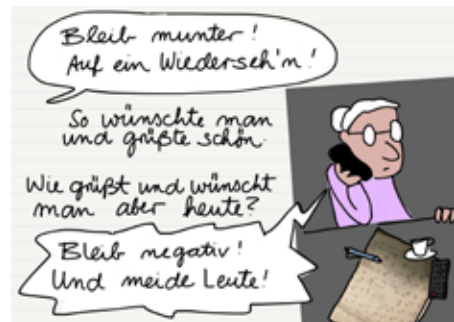 Bleib munter!
Auf ein Wiederseh'n!
So wünschte man
und grüßte schön.
Wie grüßt und wünscht
man aber heute?
Bleib negativ!
Und meide Leute!